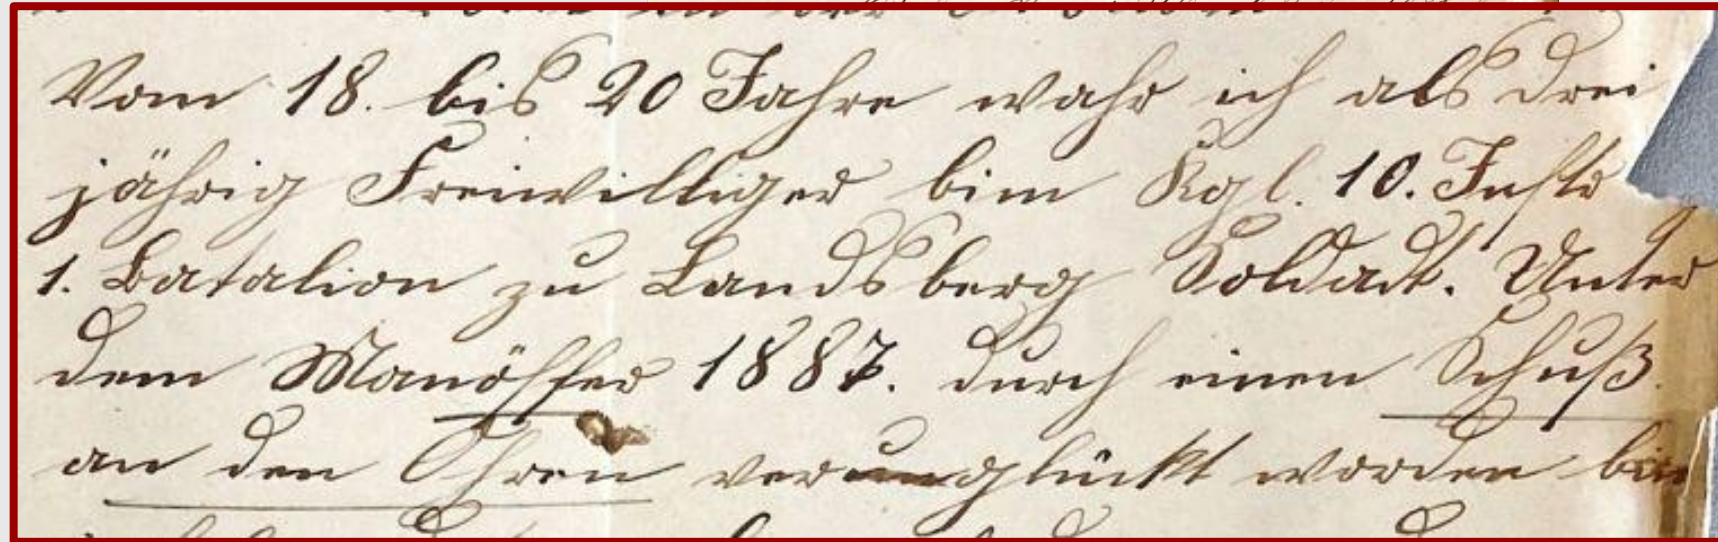 Vom 18. bis 20 Jahre wahr ich als drei
jährig Freiwilliger bim Kgl. 10. Inftr
1. Batalion zu Landsberg Soldadt. Unter
dem Manöffer 1887. durch einen Schuß
an den Ohren verunglückt worden bin